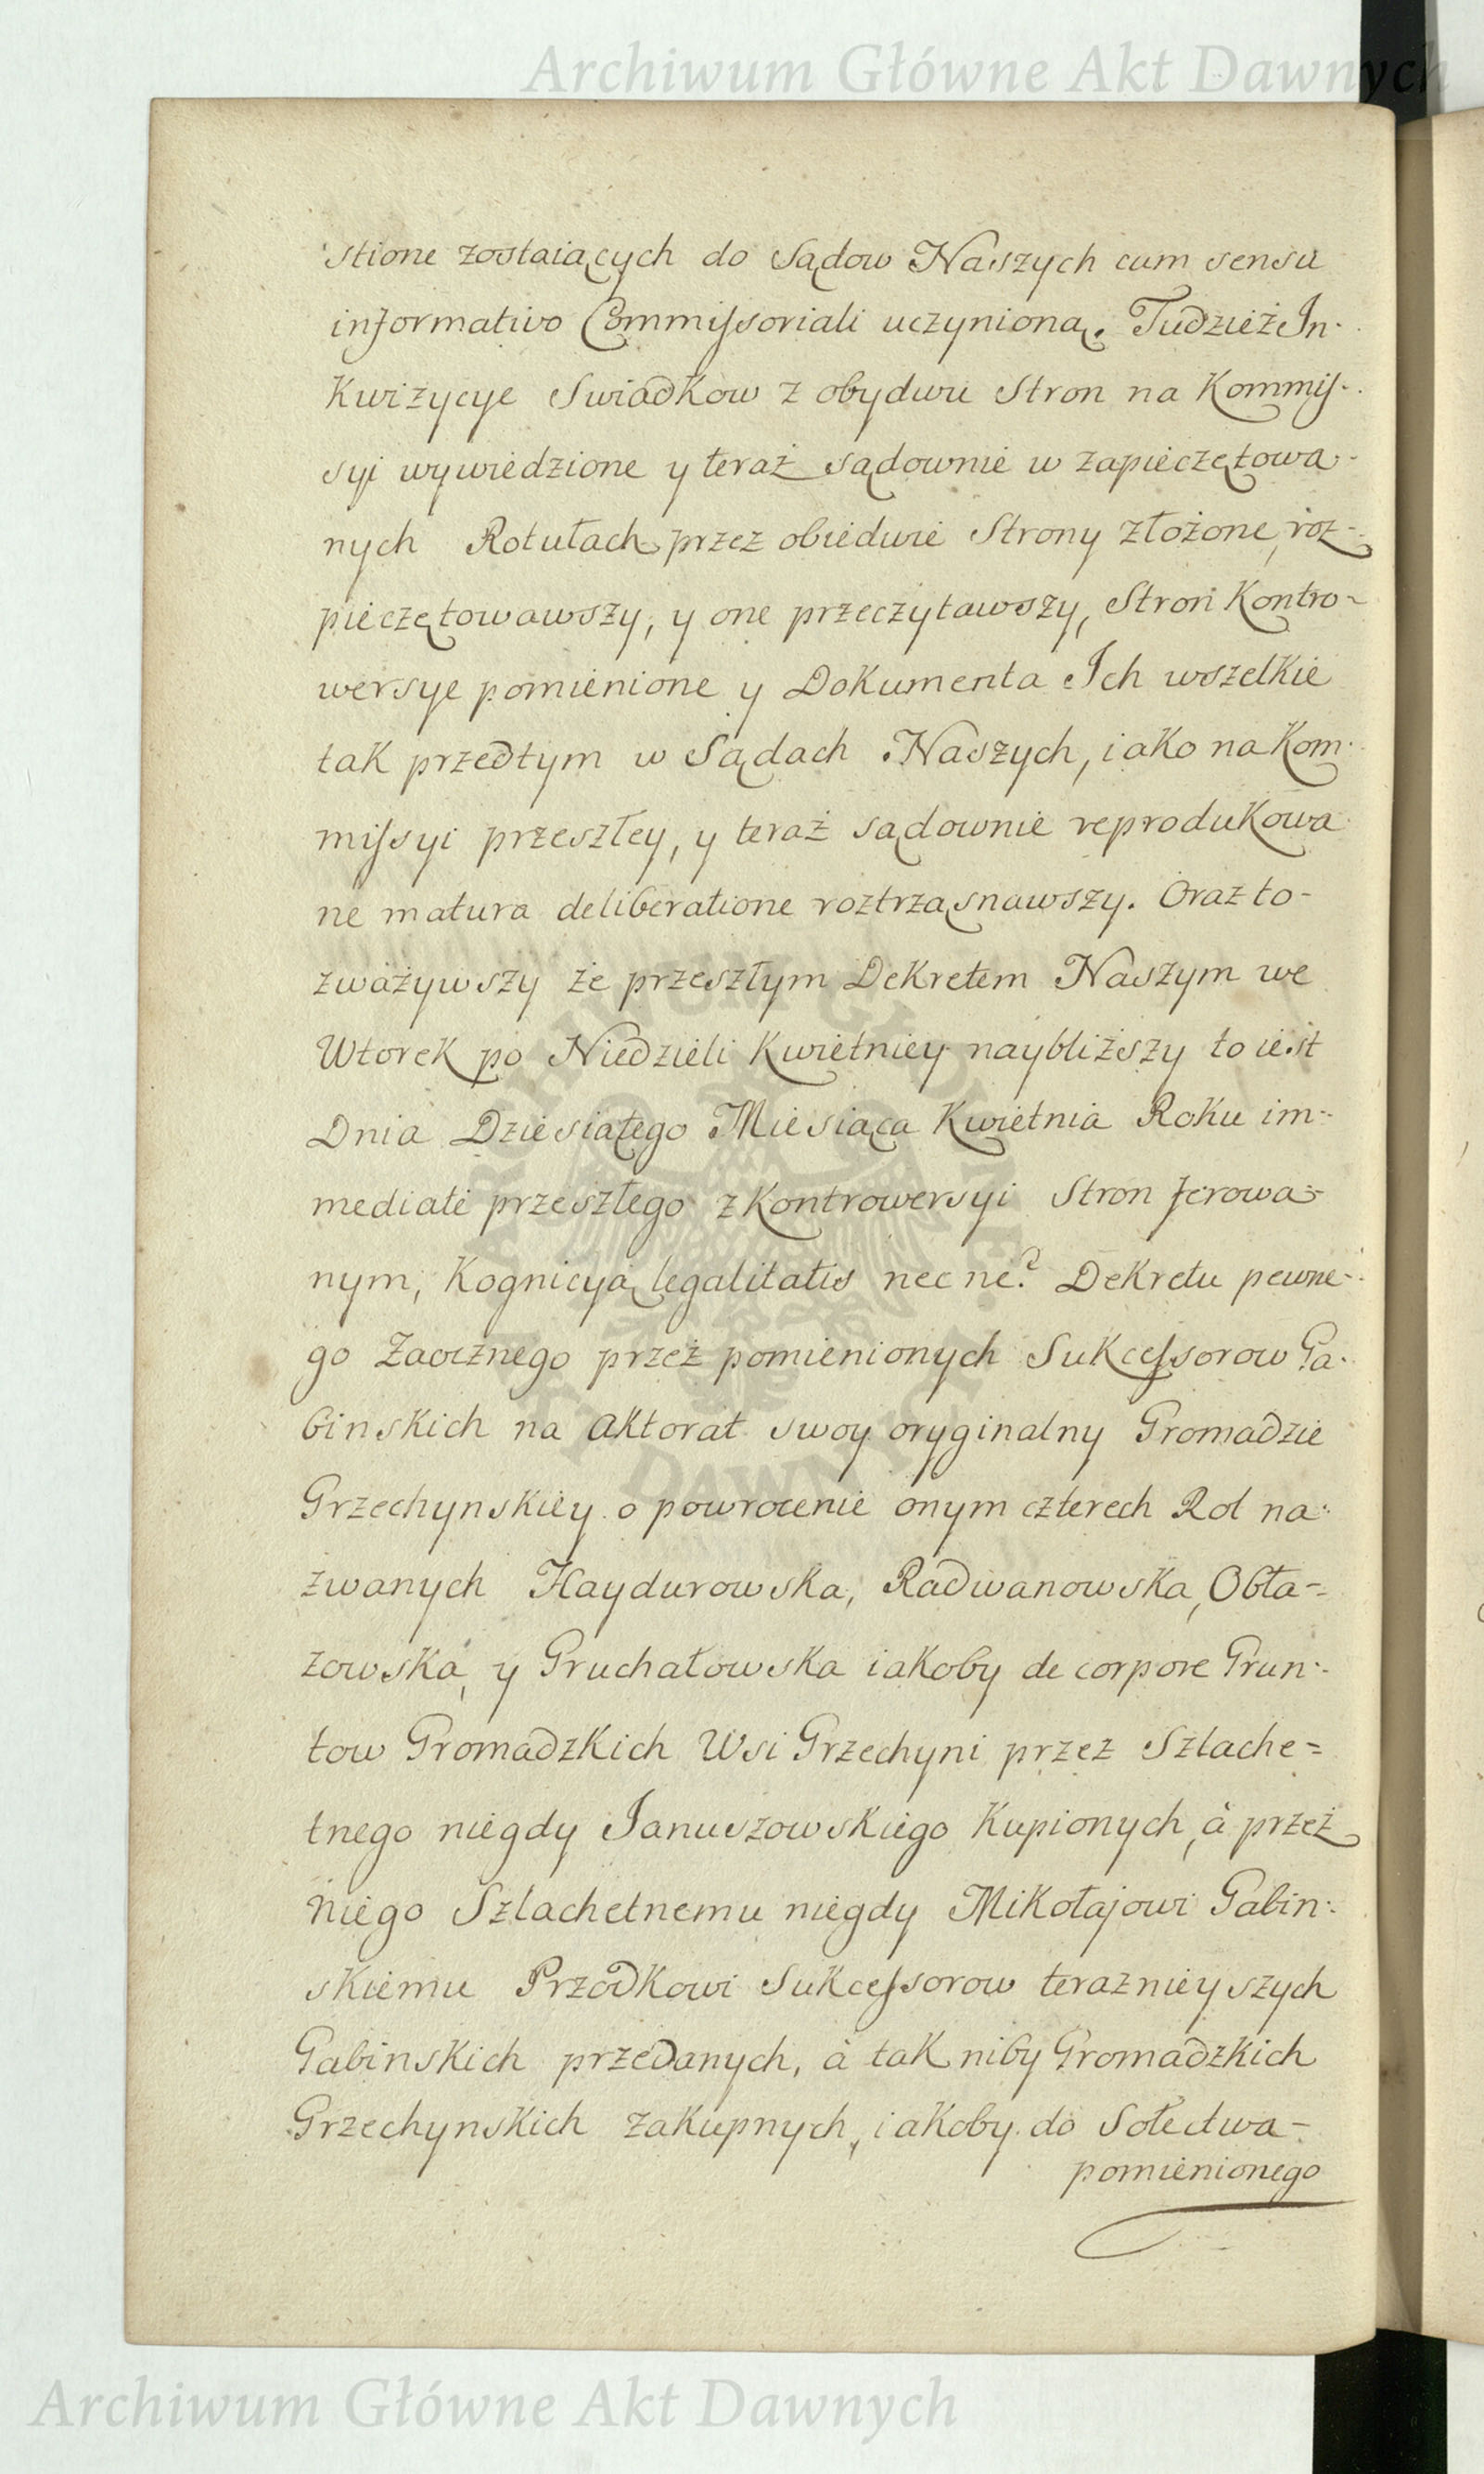 Archiwum Główne Akt Dawnych
stione zostaiących do Sądow Naszych cum sensu
informativo Commissoriali uczynioną. Tudzież In-
kwizycye Swiadkow z obydwu Stron na Kommis-
syi wywiedzione y teraz sądownie w zapieczętowa-
nych Rotułach przez obiedwie Strony złożone, roz-
pieczętowawszy, y one przeczytawszy, Stron Kontro-
wersye pomienione y Dokumenta Ich wszelkie
tak przedtym w Sądach Naszych, iako na Kom-
missyi przeszłey, y teraz sądownie reprodukowa-
ne matura deliberatione roztrząsnawszy. Oraz to-
zważywszy że przeszłym Dekretem Naszym we
Wtorek po Niedzieli Kwietniey naybliższy to iest
Dnia Dziesiątego Miesiąca Kwietnia Roku im-
mediate przeszłego z Kontrowersyi Stron ferowa-
nym, Kognicyą legalitatis nec ne? Dekretu pewne-
go Zaocznego przez pomienionych Sukcessorow Ga-
binskich na Aktorat swoy oryginalny Gromadzie
Grzechynskiey o powrocenie onym czterech Rol na-
zwanych Haydurowska, Radwanowska, Obła-
zowska, y Gruchałowska iakoby de corpore Grun-
tow Gromadzkich Wsi Grzechyni przez Szlache=
tnego niegdy Januszowskiego Kupionych, à przez
niego Szlachetnemu niegdy Mikołajowi Gabin-
skiemu Przodkowi Sukcessorow teraznieyszych
Gabinskich przedanych, à tak niby Gromadzkich
Grzechynskich zakupnych, iakoby do Sołectwa-
pomienionego
ARCHIWUM GŁÓWNE AKT DAWNYCH
Archiwum Główne Akt Dawnych